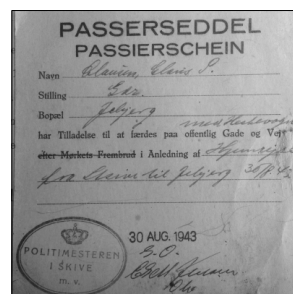 PASSERSEDDEL
PASSIERSCHEIN
Navn Clausen, Claus P.
Stilling Gdr.
Bopæl Jebjerg
med Hestevogn
har Tilladelse til at færdes paa offentlig Gade og Vej
efter Mørkets Frembrud i Anledning af Hjemrejse
fra Skive til Jebjerg 30/8 43
30 AUG. 1943
E. O.
POLITIMESTEREN
I SKIVE
m. v.